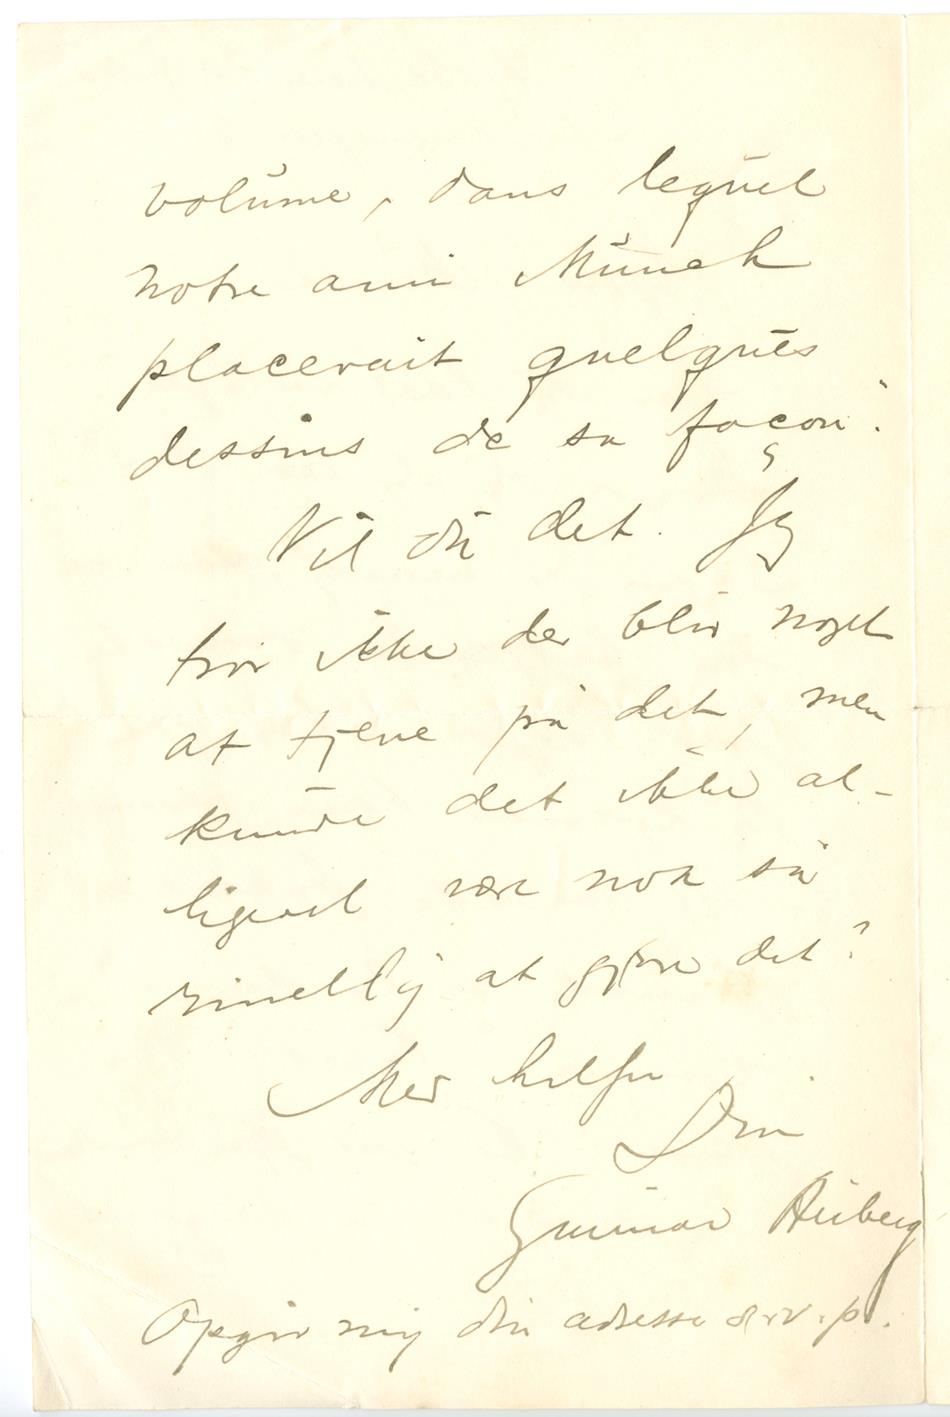 volume, dans lequel
notre ami Munch
placerait quelques
dessins de sa façon".
Vil du det. Jeg
tror ikke der blir noget
at tjene på det, men
kunde det ikke al-
ligevel være nok så
rimellig at gjøre det?
Med hilsen
Din
Gunnar Heiberg
Opgiv mig din adresse s.v.p.